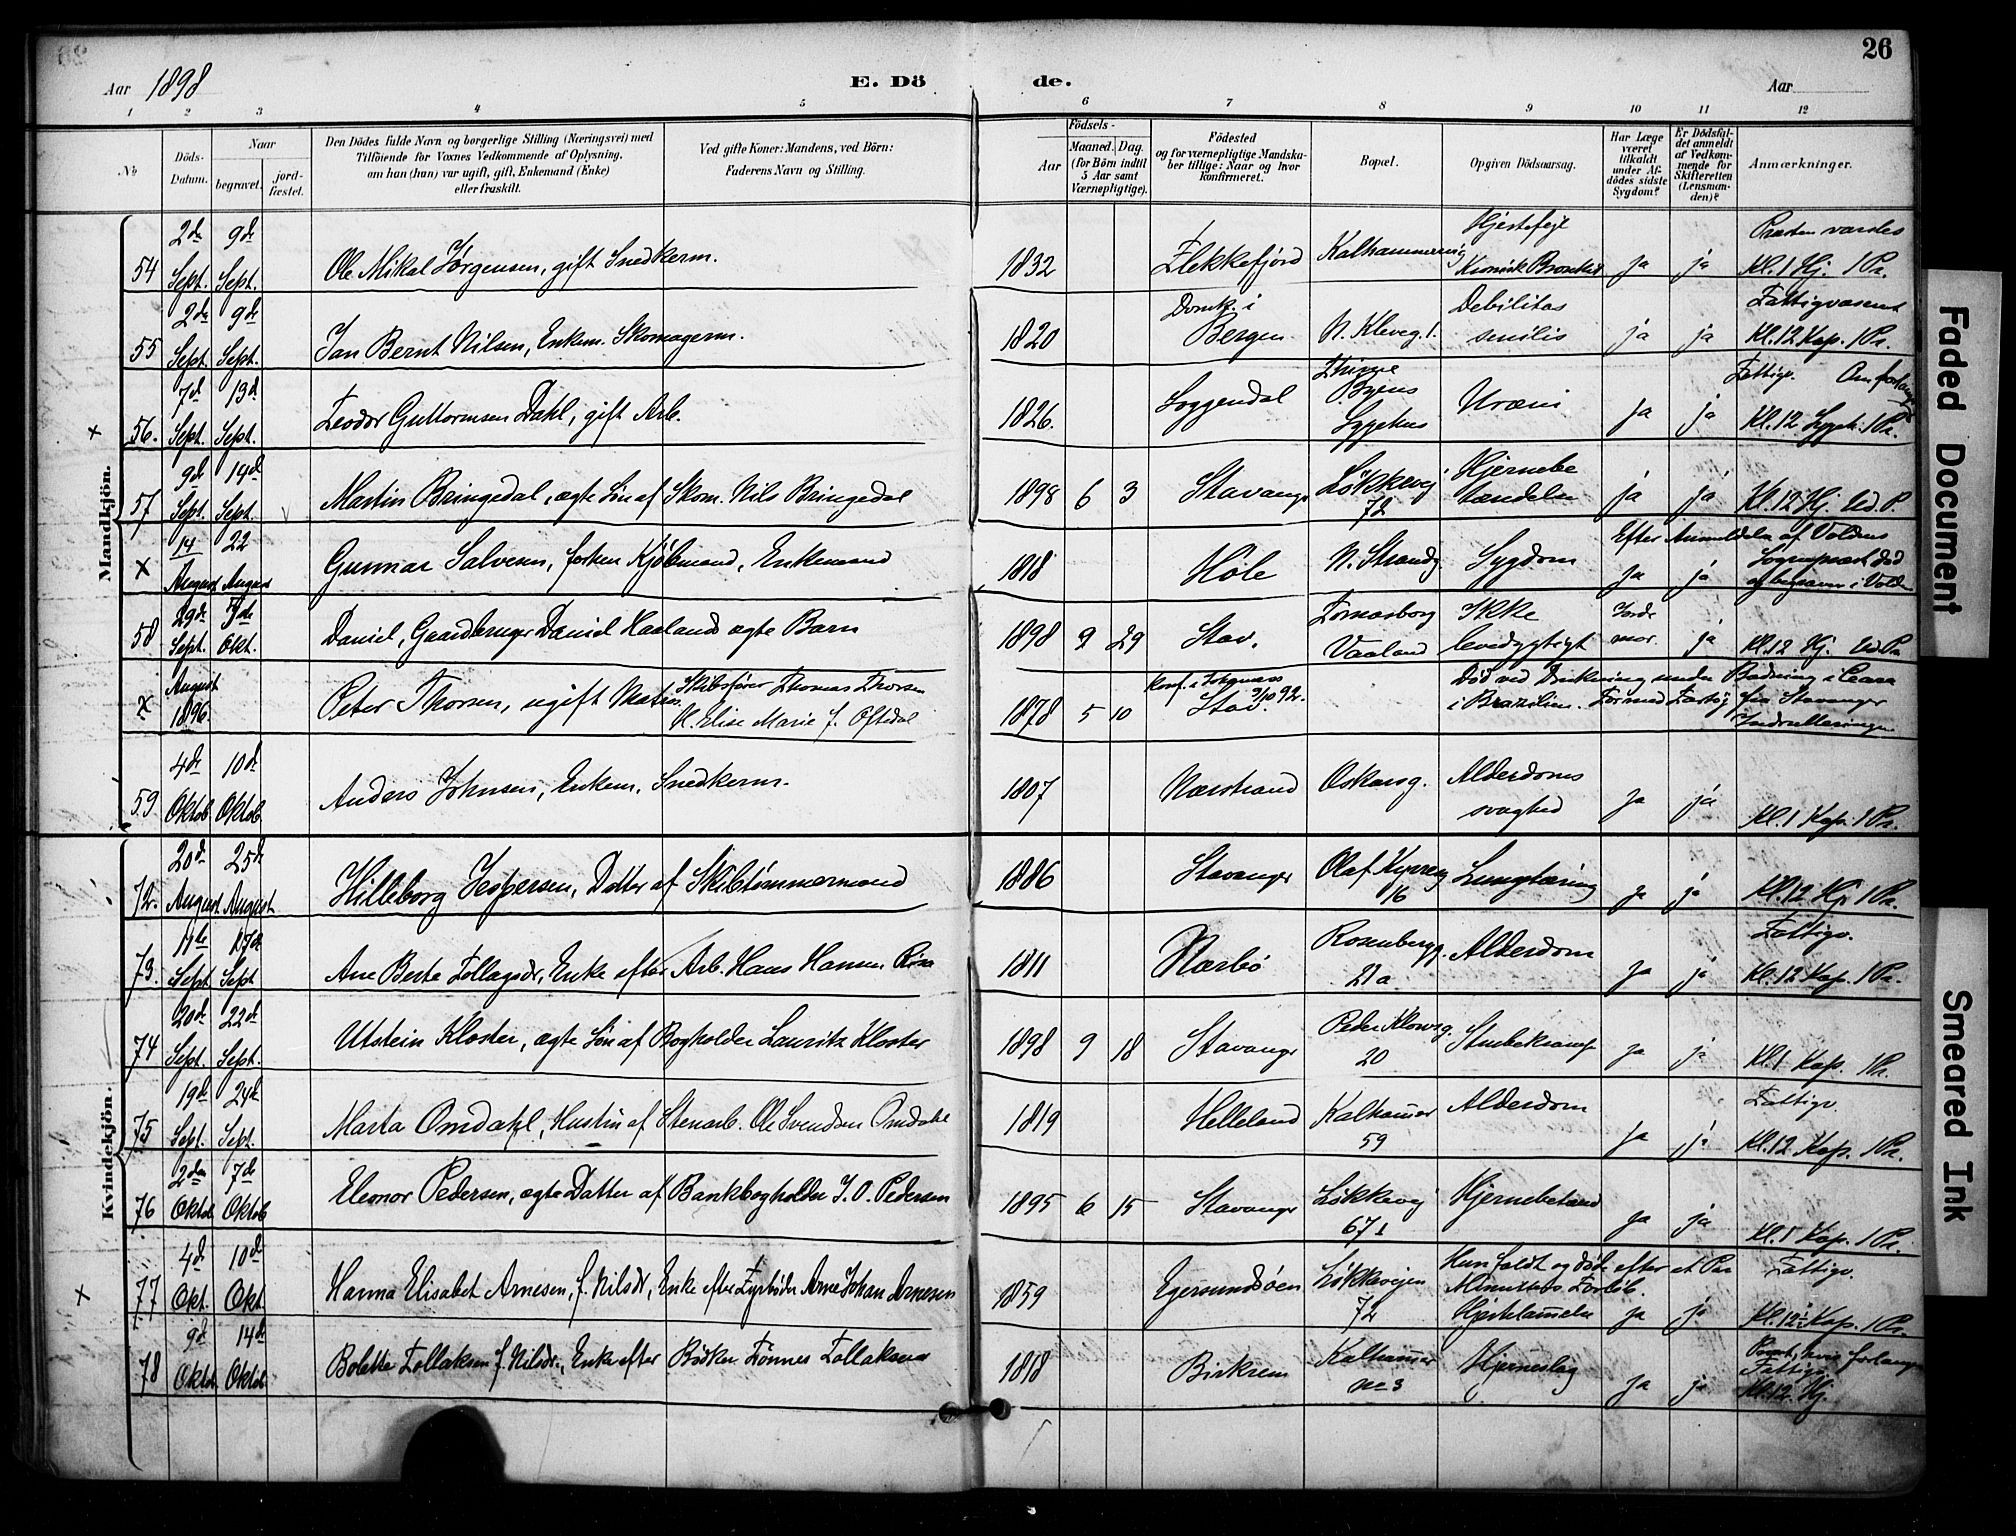 26
Aar 1898
E. Dö de.
Aar
1 2 3 4 5 6 7 8 9 10 11 12
No
Döds-Datum.
Naar
begravet.
jordfæstet.
Den Dödes fulde Navn og borgerlige Stilling (Næringsvei) med
Tilföiende for Voxnes Vedkommende af Oplysning,
om han (hun) var ugift, gift, Enkemand (Enke)
eller fraskilt.
Ved gifte Koner: Mandens, ved Börn:
Faderens Navn og Stilling.
Födsels-
Aar
Maaned. Dag.
(for Börn indtil
5 Aar samt
Værnepligtige).
Födested
og for værnepligtige Mandska-
ber tillige: Naar og hvor
konfirmeret.
Bopæl.
Opgiven Dödsaarsag.
Har Læge
været
tilkaldt
under Af-
dödes sidste
Sygdom?
Er Dödsfal-
det anmeldt
af Vedkom-
mende for
Skifteretten
(Lensman-
den)?
Anmærkninger.
Mandkjön.
54 2de Sept. 9de Sept. Ole Mikal Jörgensen, gift Snedkerm. 1832 Flekkefjord Kalhammervig Hjertefeil Kronisk Ja ja Kl. 1 Hj. 1 Pr.
55 2de Sept. 9de Sept. Jan Bernt Nilsen, Enkem. Skomagerm. 1820 Domk. i Bergen N. Kleveg. 1. Debilitas senilis ja ja Fattigvæsent Kl. 12 Kap. 1 Pr.
x 56. 7d Sept. 13d Sept. Teodor Guttormsen Dahl, gift Arb. 1826. Soggendal Byens Sygehus Uræmi Ja ja Fattigv. Kl. 12 Sygeh. 1 Pr.
57 9d Sept. 14d Sept. Martin Bringedal, ægte Sön af Skom. Nils Bringedal 1898 6 3 Stavanger Lökkevej 72 Hjernebetændelse ja ja Kl. 12 Hj. Ud. P.
x 14 August 22 August Gunnar Salvesen, forhen Kjöbmand, Enkemand 1818 Höle N. Strandg Sygdom Ja ja Efter Anmeldelse af Voldens Sogneprest Död og begraven i Volden
58 29de Sept. 7de Okt. Daniel, Gaardbruger Daniel Haalands ægte Barn 1898 9 29 Stav. Vaaland Ikke levedygtigt Jordmor. ja Kl. 12 Hj. Ud. Pr
x August 1896. Peter Thorsen, ugift Matros. Skibsförer Thomas Thorsen H. Elise Marie f. Oftedal 1878 5 10 Konf. i Stav. 3/10 92. Död ved Drukning under Badning i Ceara i Brazilien. fra Stavanger
59 4de Oktob 10de Oktob. Anders Johnsen, Enkem. Snedkerm. 1807 Nærstrand Oskarsg. Alderdoms svaghed Ja ja Kl. 1 Kap. 1 Pr.
Kvindekjön.
72. 20de August 25de August Hilleborg Jespersen, Datter af Skibtömmermand 1886 Stavanger Olaf Kyrresg 16 Lungtæring Ja ja Kl. 12 Hj. 1 Pr.
73. 11te Sept 17de Sept Ane Berte Tollagsdr, Enke efter Arb. Hans Hansen 1811 Nærbö Rosenbergg. 21a Alderdom Ja ja Fattigv. Kl. 12 Kap. 1 Pr.
74 20de Sept. 22de Sept. Utstein Kloster, ægte Sön af Bogholder Lauritz Kloster 1898 9 18 Stavanger Peder Klowsg. 20 Strubekrampe Ja ja Kl. 1 Kap. 1 Pr.
75 19de Sept. 24de Sept. Marta Omdahl, Hustru af Stenarb. Ole Svendsen Omdahl 1819 Helleland Kalhammer 59 Alderdom Ja ja Fattigv. Kl. 12 Kap. 1 Pr.
76 2den Oktob 7de Oktob Eleonor Pedersen, ægte Datter af Bankbogholder J. O. Pedersen 1895 6 15 Stavanger Lökkevej 67 I Hjernebetænd Ja ja Kl. 1 Kap. 1 Pr.
x 77 4de Okt. 10de Okt Hanna Elisabet Arnesen, f. Nilsdr, Enke efter Fyrböder Arne Johan Arnesen 1859 Egersundsöen Lökkevejen 72 Hun faldt og döde efter et Par Minutters Forlöb. Hjertelammelse Ja ja Fattigv. Kl. 12 Kap. 1 Pr.
78 9de Oktob 14de Oktob Bolette Tollaksen f. Nilsdr., Enke efter Bödker Tönnes Tollaksen 1818 Birkrem Kalhammer no 3 Hjerneslag Ja ja Prest, hvis forlanges Fattigv. Kl. 12. Hj.
Faded Document
Smeared Ink